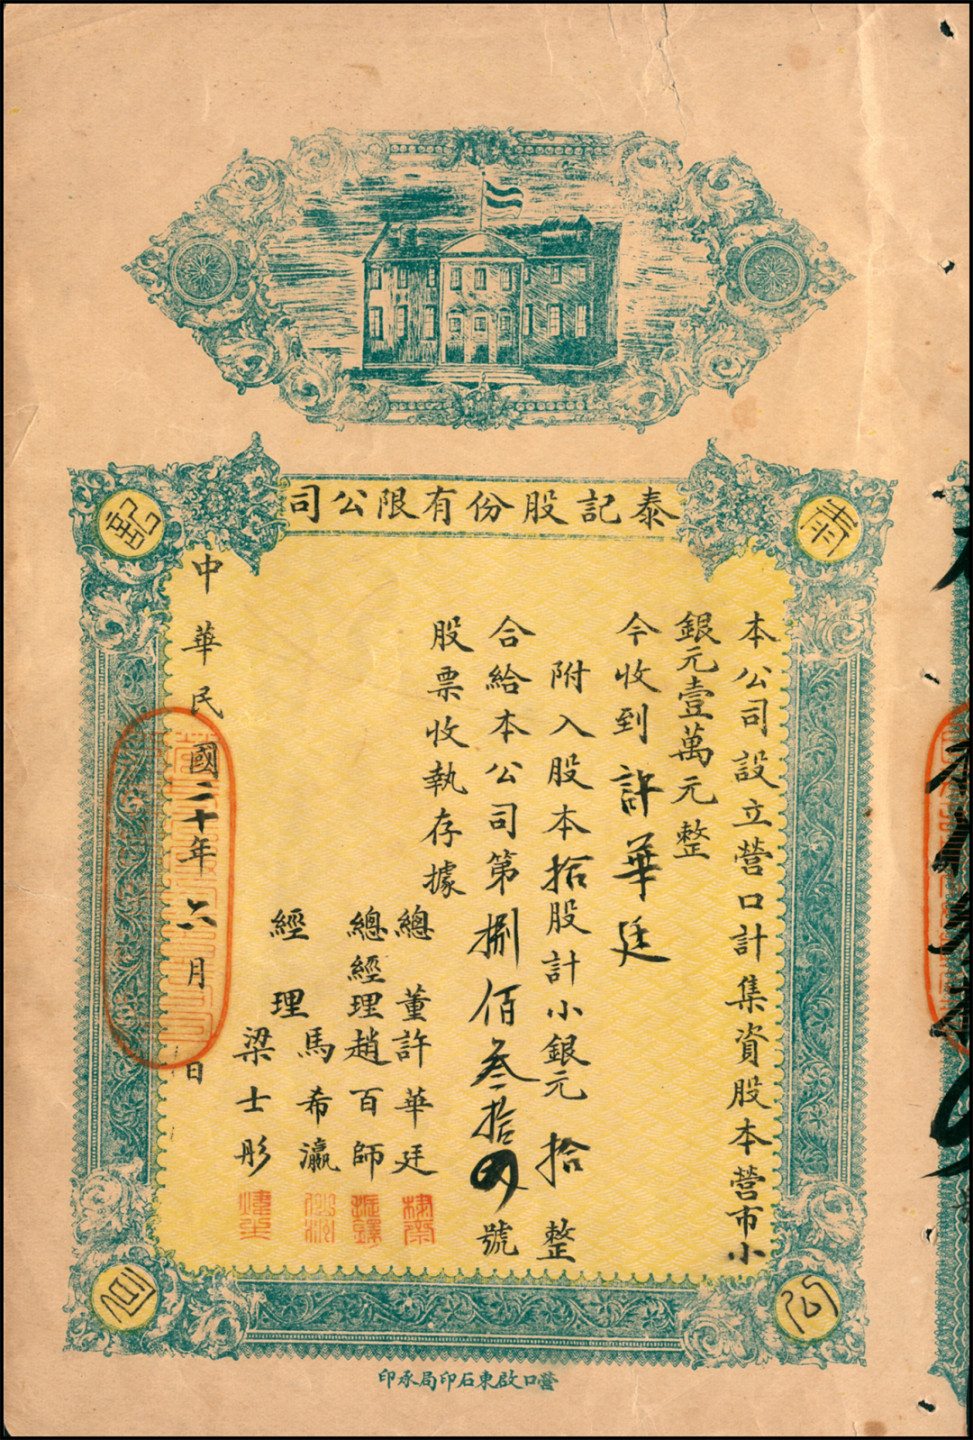 泰記股份有限公司
泰
記
公
司
本公司設立營口計集資股本營市小
銀元壹萬元整
今收到許華廷
附入股本拾股計小銀元拾整
合給本公司第捌佰叁拾四號
股票收執存據
總董許華廷
總經理趙百師
經理馬希瀛
梁士彤
中華民國二十年六月日
營口啟東石印局承印